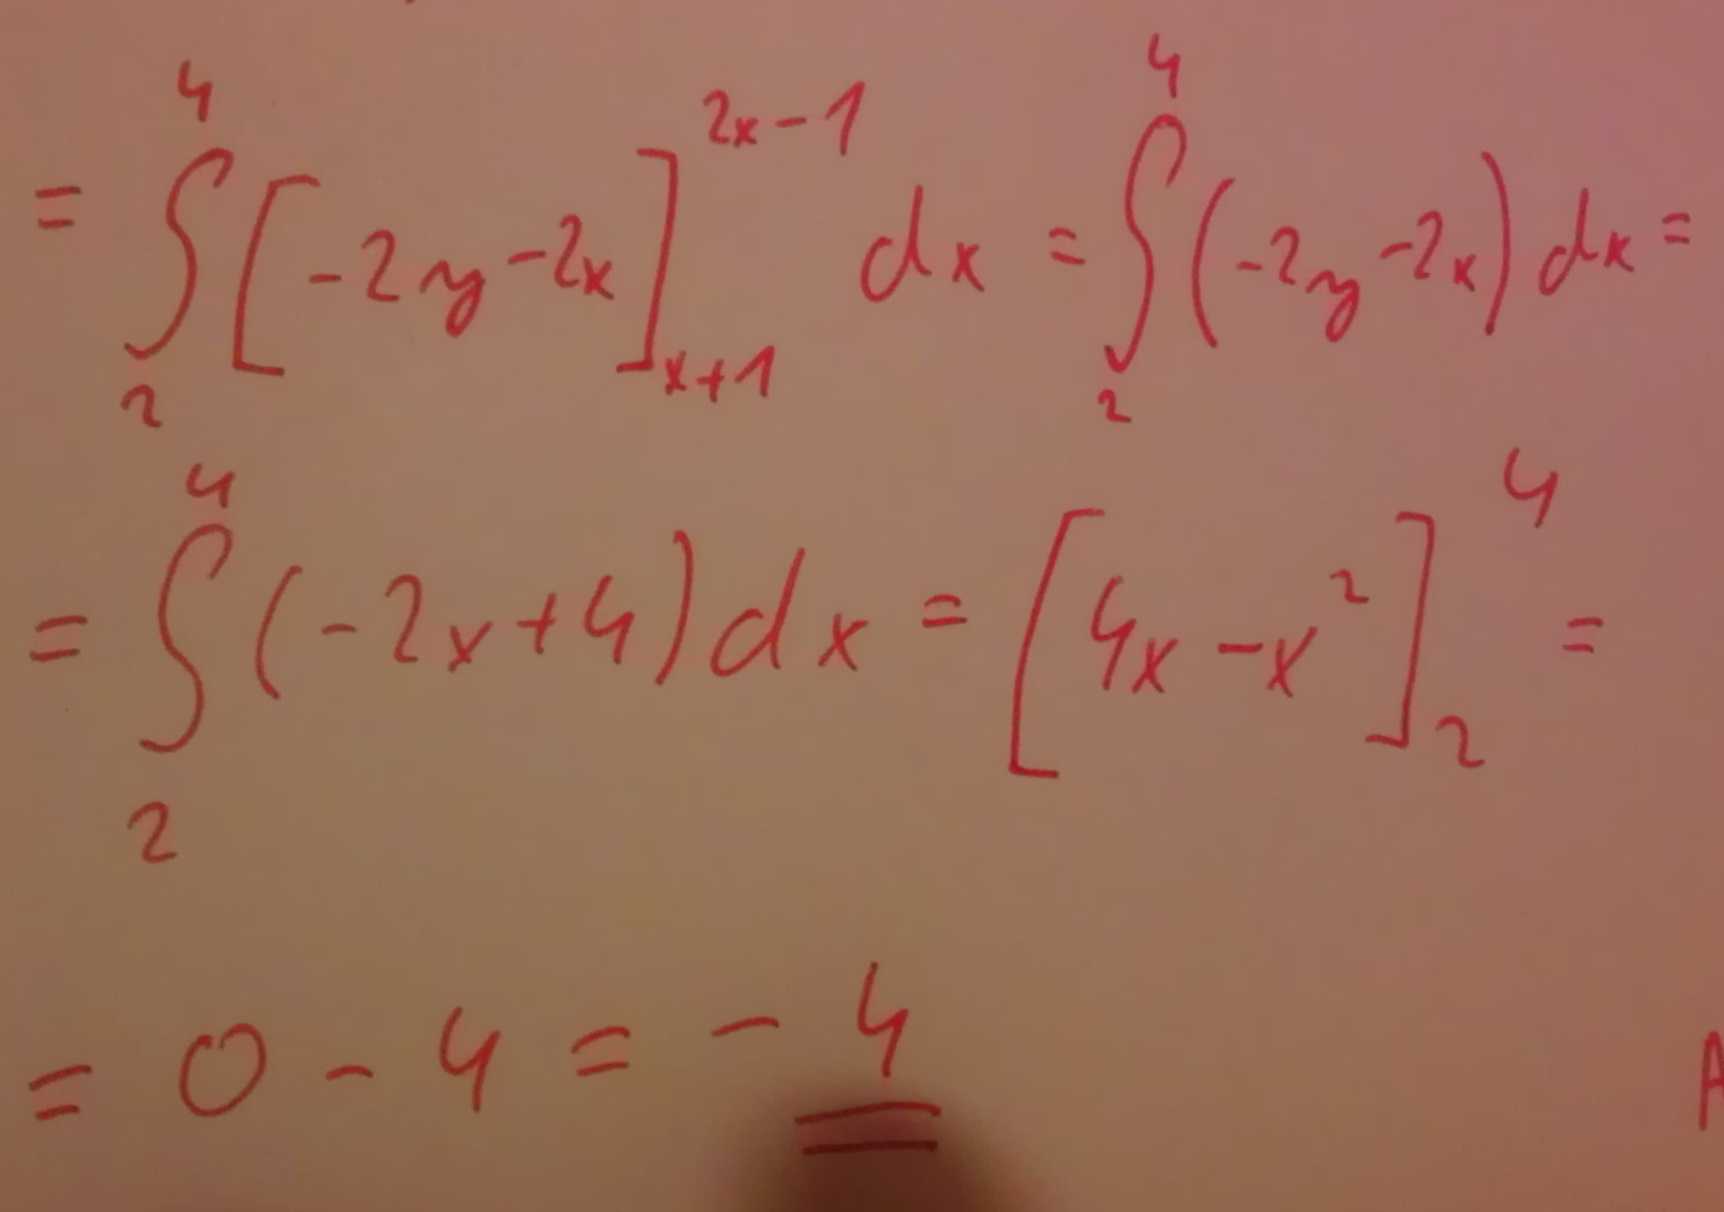 = ∫₂⁴ [-2y-2x]ₓ₊₁^(2x-1) dx = ∫₂⁴ (-2y-2x) dx =
= ∫₂⁴ (-2x+4) dx = [4x-x²]₂⁴ =
= 0 - 4 = - 4
A